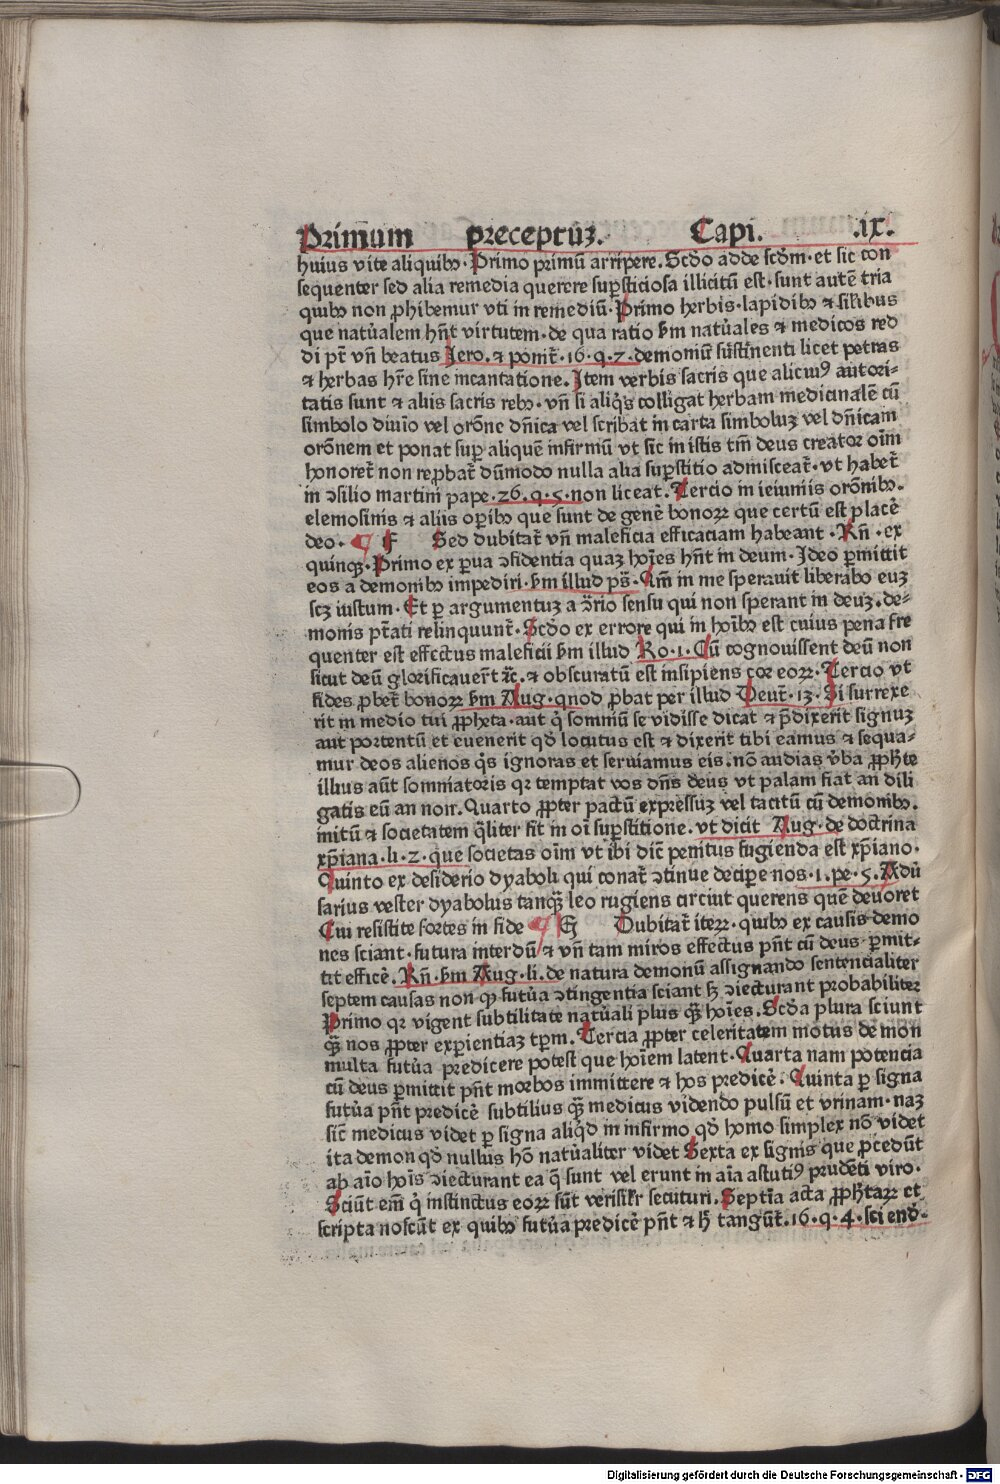 Primum preceptuʒ. Capi. .ix.
huius vite aliquibꝰ. Primo primū arripere. Scd̓o adde scd̓m. et sic con
sequenter sed alia remedia querere suꝑsticiosa illicitū est. sunt autē tria
quibꝰ non ꝓhibemur vti in remediū. Primo herbis. lapidibꝰ ⁊ silibus
que natu̓alem hn̄t virtutem. de qua ratio ẜm natu̓ales ⁊ medicos red
di pt̄ vn̄ beatus Jero. ⁊ ponit̄. 16. q. 7. demoniū sustinenti licet petras
⁊ herbas hr̄e sine incantatione. Item verbis sacris que alicuiꝰ autori-
tatis sunt ⁊ aliis sacris rebꝰ. vn̄ si aliq̓s colligat herbam medicinalē cū
simbolo diuīo vel orōne dn̄ica vel scribat in carta simboluʒ vel dn̄icam
orōnem et ponat suꝑ aliquē infirmū vt sic in istis tm̄ deus creator oīm
honoret̄ non reꝓbat̄ dūmodo nulla alia suꝑstitio admisceat̄. vt habet̄
in ↄsilio martini pape. 26. q. 5. non liceat. Tercio in ieiuniis orōnibꝰ.
elemosinis ⁊ aliis oꝑibꝰ que sunt de genē bonoꝝ que certū est placē
deo. ¶ F Sed dubitat̄ vn̄ maleficia efficaciam habeant. Rn̄. ex
quinqꝫ. Primo ex ꝑua ↄfidentia quaʒ hoīes hn̄t in deum. Ideo ꝑmittit
eos a demonibꝰ impediri. ẜm illud ps̄. Qm̄ in me sperauit liberabo euʒ
scʒ iustum. Et ꝑ argumentuʒ a ↄ̄rio sensu qui non sperant in deuʒ. de-
monis pt̄ati relinquunt̄. Scd̓o ex errore qui in hoībꝰ est cuius pena fre
quenter est effectus maleficii ẜm illud Ro. 1. Cū cognouissent deū non
sicut deū glorificauer̄t ⁊c̄. ⁊ obscuratū est insipiens cor eoꝝ. Tercio vt
fides ꝓbet̄ bonoꝝ ẜm Aug. qnod ꝓbat per illud Deut̄. 13. Si surrexe
rit in medio tui ꝓpheta. aut q̓ somniū se vidisse dicat ⁊ p̄dixerit signuʒ
aut portentū et euenerit qd̓ locutus est ⁊ dixerit tibi eamus ⁊ sequa-
mur deos alienos q̓s ignoras et seruiamus eis. nō audias v̓ba ꝓph̄te
illius aūt somniatoris qr temptat vos dn̄s deus vt palam fiat an dili
gatis eū an non. Quarto ꝓpter pactū expressuʒ vel tacitū cū demonibꝰ.
initū ⁊ societatem q̄liter fit in oī suꝑstitione. vt dicit Aug. de doctrina
xp̄iana. li. 2. que societas oīm vt ibi dic̄ penitus fugienda est xp̄iano.
Quinto ex desiderio dyaboli qui conat̄ ↄtinue deciꝑe nos. 1. pe. 5. Adu̓
sarius vester dyabolus tanqꝫ̄ leo rugiens circiut querens quē deuoret
Cui resistite fortes in fide ¶ G Dubitat̄ iteꝝ. quibꝰ ex causis demo
nes sciant. futura interdū ⁊ vn̄ tam miros effectus pn̄t cū deus ꝑmit-
tit efficē. Rn̄. ẜm Aug. li. de natura demonū assignando sentencialiter
septem causas non qꝫ futu̓a ↄtingentia sciant sʒ ↄiecturant probabiliter
Primo qr vigent subtilitate natu̓ali plus qꝫ̄ hoīes. Scd̓a plura sciunt
qꝫ̄ nos ꝓpter exꝑientiaʒ tp̄m. Tercia ꝓpter celeritatem motus de mon
multa futu̓a predicere potest que hoīem latent. Quarta nam potencia
cū deus ꝑmittit pn̄t morbos immittere ⁊ hos predicē. Quinta ꝑ signa
futu̓a pn̄t predicē subtilius qꝫ̄ medicus videndo pulsū et vrinam. naʒ
sic̄ medicus videt ꝑ signa aliq̓d in infirmo qd̓ homo simplex nō videt
ita demon qd̓ nullus hō natu̓aliter videt Sexta ex signis que ꝓcedūt
ab aīo hoīs ↄiecturant ea q̄ sunt vel erunt in aīa astutiꝰ prudēti viro.
Sciūt em̄ q̓ instinctus eoꝝ sūt verisilr̄ secuturi. Septīa acta ꝓph̄taꝝ et
scripta noscūt ex quibꝰ futu̓a predicē pn̄t ⁊ h̄ tangūt̄. 16. q. 4. sciend̓.
Digitalisierung gefördert durch die Deutsche Forschungsgemeinschaft - DFG